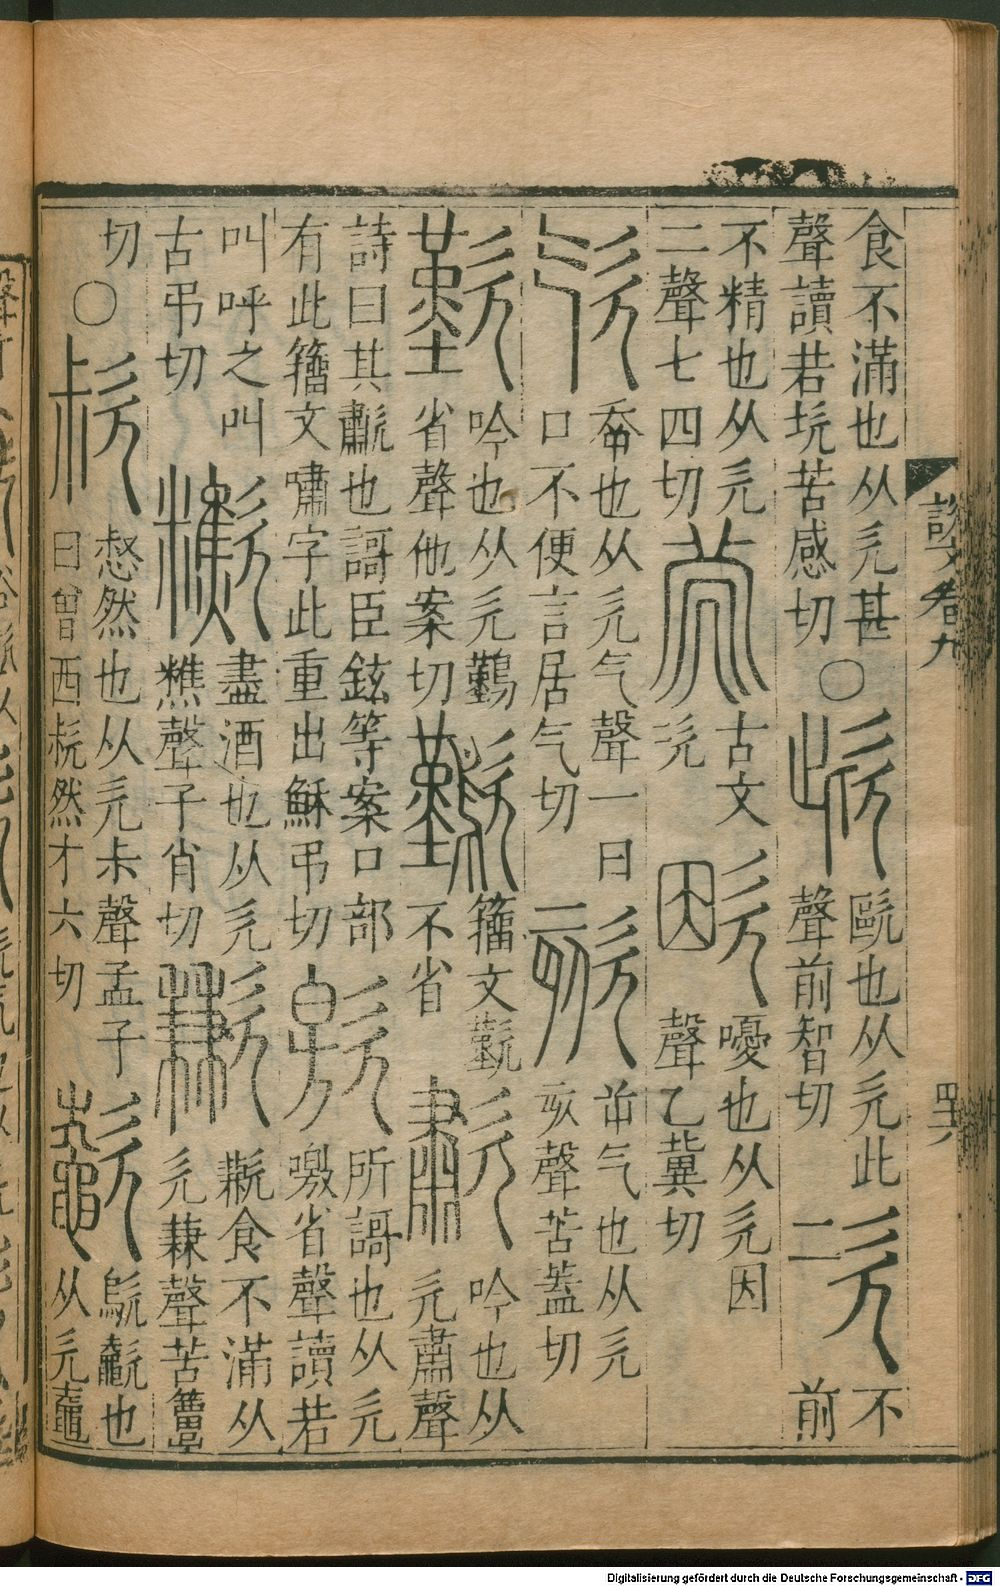 説文卷九
四六
食不滿也从欠甚聲讀若坎苦感切○㰣歐也从欠此聲前智切次不前
不精也从欠二聲七四切 古文次 嚘也从欠因聲乙冀切
㰟㚔也从欠气聲一曰口不便言居气切欬屰气也从欠亥聲苦蓋切
歎吟也从欠鷬省聲他案切歎籒文歎不省歗吟也从欠肅聲
詩曰其歗也謌臣鉉等案口部有此籒文嘯字此重出穌弔切 所謌也从欠噭省聲讀若
叫呼之叫古弔切 盡酒也从欠糕聲子肖切歉歉食不滿从欠兼聲苦簟切
切○㰗惄然也从欠尗聲孟子曰曾西㰗然才六切 歍 也从欠鼀
Digitalisierung gefördert durch die Deutsche Forschungsgemeinschaft - DFG